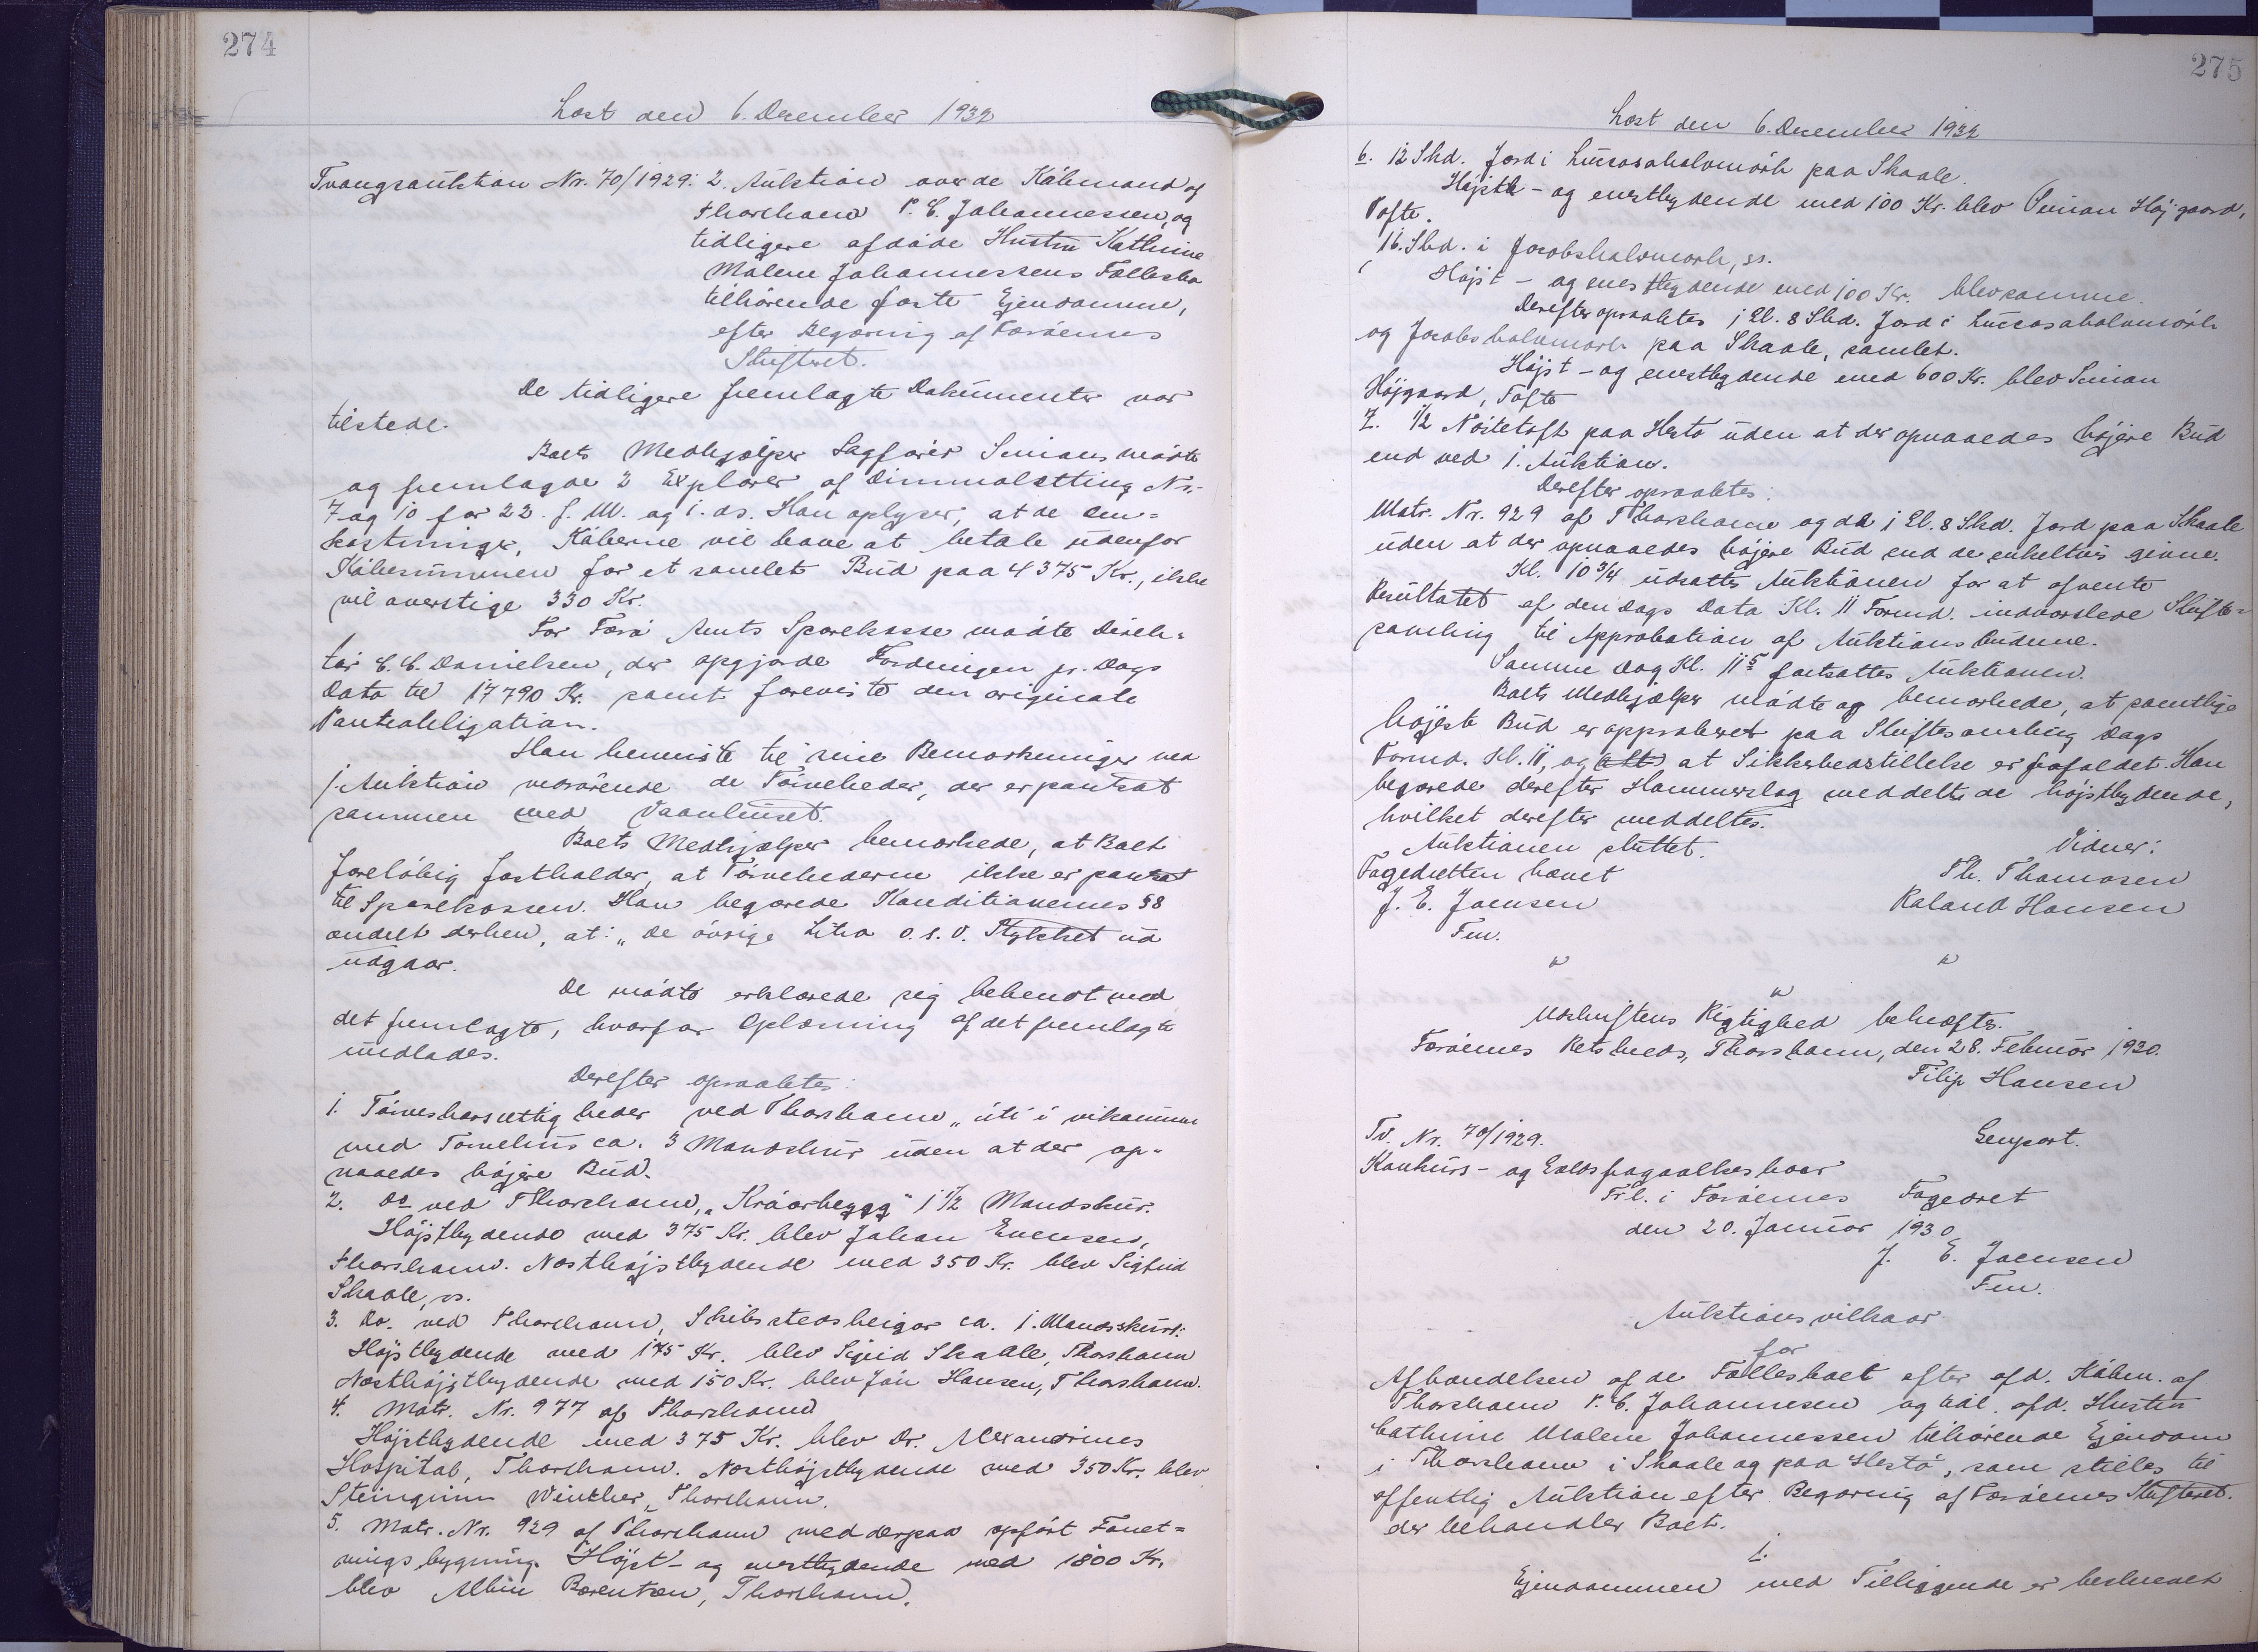 274
Læst den 6. December 1932
Tvangsauktion Nr. 70/1929: 2. Auktion over de Købmand af
Thorshavn P. C. Johannessen, og
tidligere afdøde Hustru Kathrine
Malene Johannessens Fællesbo
tilhørende faste Ejendomme,
efter Begæring af Færøernes
Skifteret.
De tidligere fremlagte Dokumenter var
tilstede.
Boets Medhjælper Sagfører Simons mødte
og fremlagde 2 Explarer af Dimmalætting Nr.
7 og 10 for 22. f. M. og 1. ds. Han oplyser, at de Om=
kostninger, Køberne vil have at betale udenfor
Købesummen for et samlet Bud paa 4375 Kr., ikke
vil overstige 330 Kr.
For Færø Amts Sparekasse mødte Direk=
tør C. C. Danielsen, der opgjorde Fordringen pr. Dags
Dato til 17790 Kr. samt foreviste den originale
Panteobligation.
Han henviste til sine Bemærkninger ved
1. Auktion vedrørende de Tørveheder, der er pantsat
sammen med Vaanhuset.
Boets Medhjælper bemærkede, at Boet
foreløbig fastholder, at Tørvehederne ikke er pantsat
til Sparekassen. Han begærede Konditionernes §8
ændret derhen, at: „De øvrige Litra o.s.v. Stykket ud
udgaar.
De mødte erklærede sig bekendt med
det fremlagte, hvorfor Oplæsning af det fremlagte
undlades.
Derefter opraabtes:
1. Tørveskærsrettigheder ved Thorshavn „úti í vikunum
med Tørvehus ca. 3 Mandskur uden at der op-
naaedes højere Bud.
2. Do ved Thorshavn, „Kráarbygg" 1 1/2 Mandskur.
Højstbydende med 375 Kr. blev Johan Evensen,
Thorshavn. Næsthøjstbydende med 350 Kr. blev Sigfrid
Skaale, ss.
3. Do. ved Thorshavn, Skibstedsheigar ca. 1. Mandsskurd:
Højstbydende med 175 Kr. blev Sigrid Skaale, Thorshavn
Næsthøjstbydende med 150 Kr. blev Jón Hansen, Thorshavn.
4. Matr. Nr. 977 af Thorshavn
Højstbydende med 375 Kr. blev Dr. Alexandrines
Hospital, Thorshavn. Næsthøjstbydende med 350 Kr. blev
Steingrim Winther, Thorshavn.
5. Matr. Nr. 929 af Thorshavn med derpaa opført Forret=
nings bygning. Højst- og enestbydende med 1800 Kr.
blev Albin Bærentsen, Thorshavn.
275
Læst den 6. December 1932
6. 12 Skd. Jord i Lucasahalvmørk paa Skaale.
Højst- og enestbydende med 100 Kr. blev Simon Højgaard,
Tofte.
16. Skd. i Jacobshalvmørk, ss.
Højst- og enestbydende med 100 Kr. blev samme.
Derefter opraabtes 1 Gl. 8 Skd. Jord i Lucasahalvmørk
og Jacobshalvmørk paa Skaale, samlet.
Højst- og enestbydende med 600 Kr. blev Simon
Højgaard, Tofte
7. 1/2 Nøstetoft paa Hestø uden at der opnaaedes højere Bud
end ved 1. Auktion.
Derefter opraabtes:
Matr. Nr. 929 af Thorshavn og de 1 Gl. 8 Skd. Jord paa Skaale
uden at der opnaaedes højere Bud end de enkeltvis givne.
Kl. 10 3/4 udsattes Auktionen for at afvente
Resultatet af den Dags Dato Kl. 11 Formd. indvarslede Skifte=
samling til Approbation af Auktionsbudene.
Samme Dag Kl. 11 5 fortsattes Auktionen.
Boets Medhjælper mødte og bemærkede, at samtlige
højeste Bud er approberet paa Skiftesamling Dags
Formd. Kl. 11, og (alt) at Sikkerhedstillelse er frafaldet. Han
begærede derefter Hammerslag meddelt de højstbydende,
hvilket derefter meddeltes.
Auktionen sluttet.
Vidner:
Fogedretten hævet
Th. Thomasen
J. E. Joensen
Roland Hansen
Fm.
Udskriftens Rigtighed bekræftes.
Færøernes Retskreds, Thorshavn, den 28. Februar 1930.
Filip Hansen
Tv. Nr. 70/1929.
Genpart.
Konkurs- og
Frl. i Færøernes Fogedret
den 20. Januar 1930
J. E. Joensen
Fm.
Auktionsvilkaar
for
Afhændelsen af de Fællesboet efter afd. Købm. af
Thorshavn P. C. Johannesen og tidl. afd. Hustru
Cathrine Malene Johannessen tilhørende Ejendom
i Thorshavn i Skaale og paa Hestø, som stilles til
offentlig Auktion efter Begæring af Færøernes Skifteret.
der behandler Boet.
1.
Ejendommen med Tilliggende er beskrevet